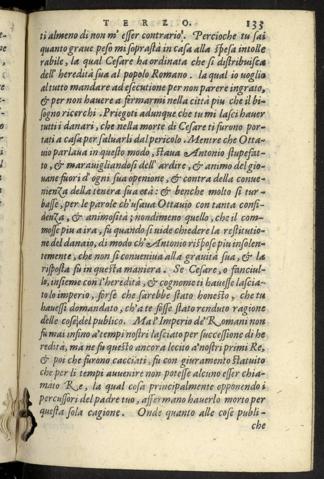 TERZO. 133
ti almeno di non m'esser contrario. Percioche tu sai
quanto graue peso mi soprastà in casa alla spesa intolle
rabile, la qual Cesare ha ordinata che si distribuisca
dell'heredità sua al popolo Romano. la qual io uoglio
al tutto mandare ad esecutione per non parere ingrato,
& per non hauere a fermarmi nella città piu che il bi-
sogno ricerchi. Priegoti adunque che tu mi lasci hauer
tutti i danari, che nella morte di Cesare ti furono por-
tati a casa per saluarli dal pericolo. Mentre che Otta
uio parlaua in questo modo, staua Antonio stupefat-
to, & marauigliandosi dell'ardire, & animo del gio-
uane fuori d'ogni sua openione, & contra della conue-
nienza della tenera sua età: & benche molto si tur-
basse, per le parole ch'usaua Ottauio con tanta confi-
denza, & animosità; nondimeno quello, che il com-
mosse piu a ira, fu quando si uide chiedere la restitutio-
ne del danaio, di modo ch'Antonio rispose piu insolen-
temente, che non si conueniua alla grauità sua, & la
risposta fu in questa maniera. Se Cesare, o fanciul-
lo, insieme con l'heredità, & cognome ti hauesse lascia-
to lo imperio, forse che sarebbe stato honesto, che tu
hauessi domandato, ch'a te fosse stato renduto ragione
delle cose del publico. Ma l'Imperio de' Romani non
fu mai insino a'tempi nostri lasciato per successione di he
redità, ma ne fu questo ancora lecito a'nostri primi Re,
& poi che furono cacciati, fu con giuramento statuito
che per li tempi auuenire non potesse alcuno esser chia-
mato Re, la qual cosa principalmente opponendo i
percussori del padre tuo, affermano hauerlo morto per
questa sola cagione. Onde quanto alle cose publi-
che